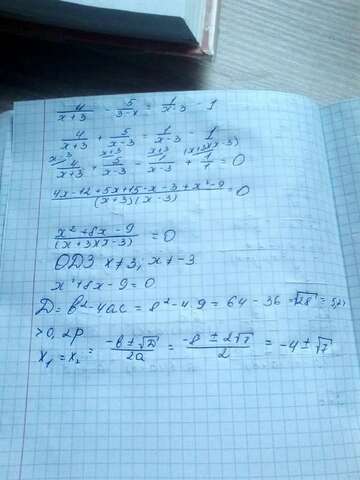 4/(x+3) - 5/(3-x) = 1/(x-3) - 1
4/(x+3) + 5/(x-3) = 1/(x-3) - 1
x-3 x+3 x+3 (x+3)(x-3)
4/(x+3) + 5/(x-3) - 1/(x-3) + 1/1 = 0
(4x-12+5x+15-x-3+x²-9)/((x+3)(x-3)) = 0
(x²+8x-9)/((x+3)(x-3)) = 0
ОДЗ x≠3, x≠-3
x²+8x-9=0
D = b²-4ac = 8²-4·9 = 64-36 = √28 = 5,21
>0, 2р
x₁ = x₂ = (-b±√D)/2a = (-8±2√7)/2 = -4±√7